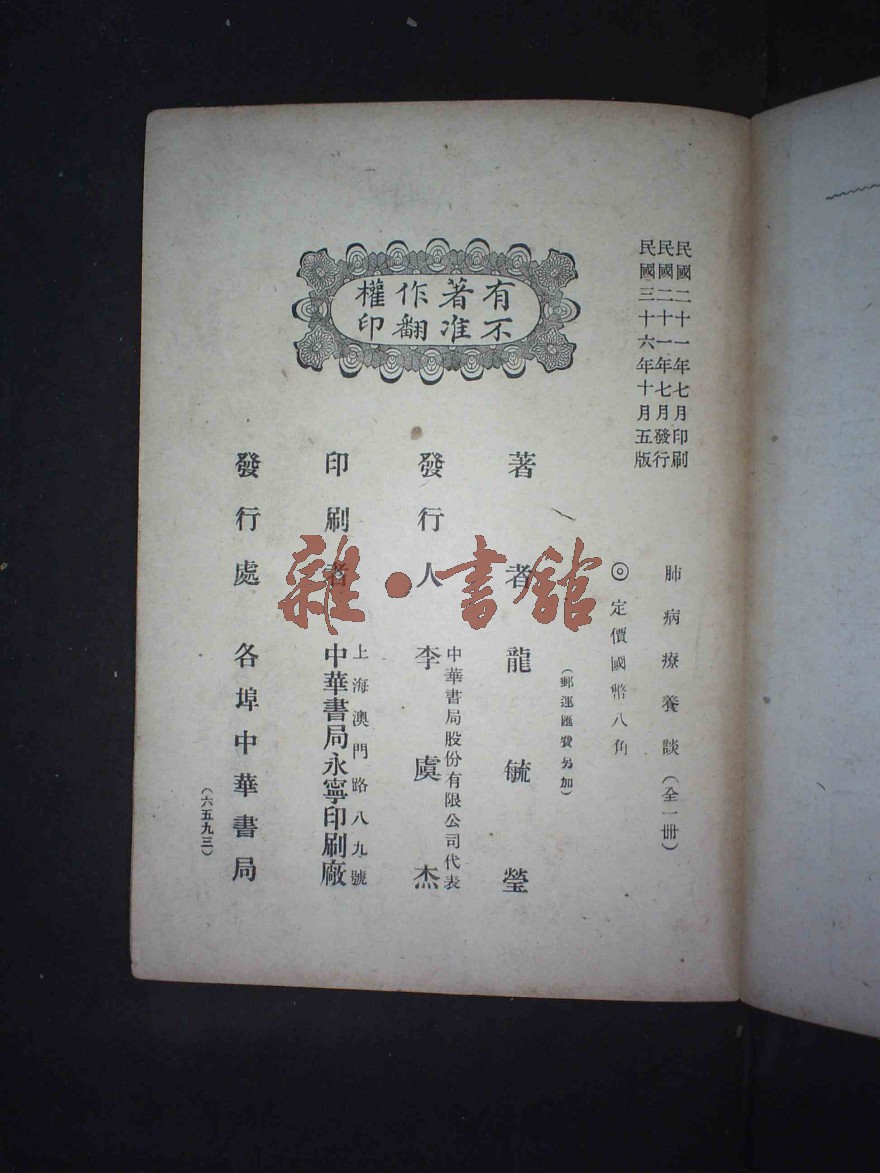 民國二十一年七月印刷
民國二十一年七月發行
民國三十六年十月五版
肺病療養談(全一冊)
◎定價國幣八角
(郵運匯費另加)
有著作權
不准翻印
著者龍毓瑩
發行人李虞杰
中華書局股份有限公司代表
印刷者中華書局永寧印刷廠
上海澳門路八九號
發行處各埠中華書局
(六五九三)
雜·書館